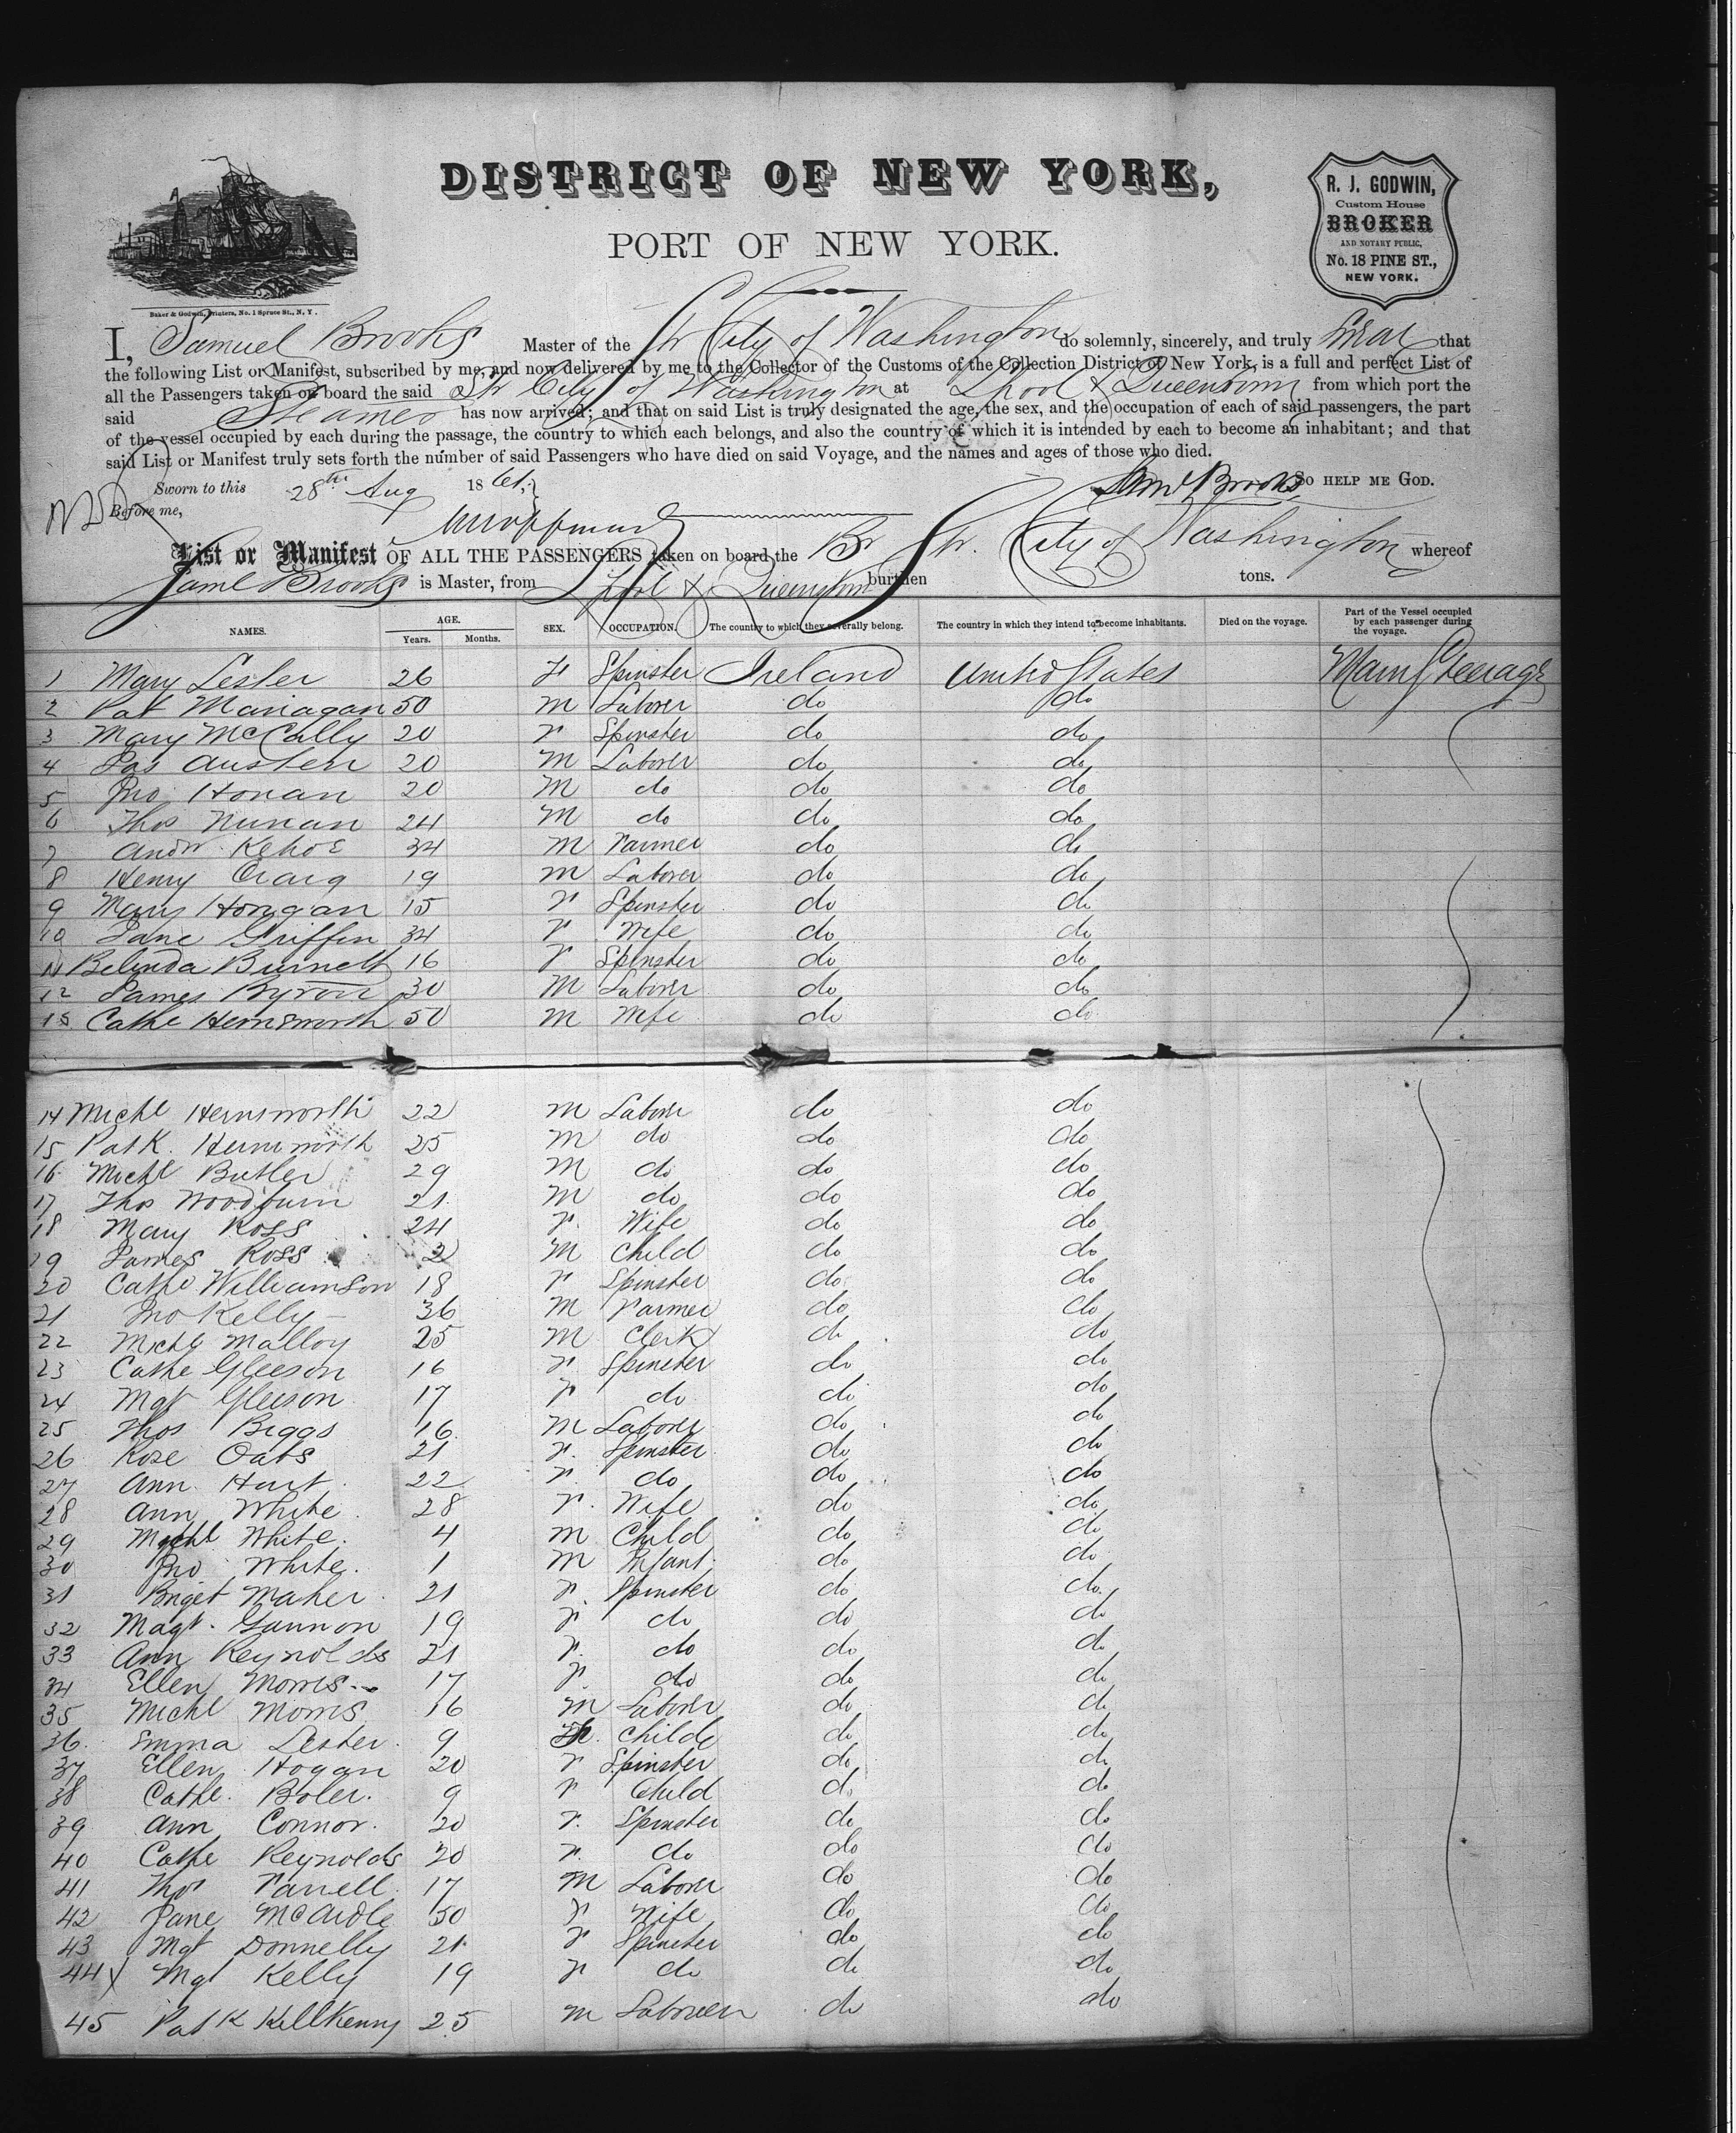 DISTRICT OF NEW YORK,
PORT OF NEW YORK.
R. J. GODWIN,
Custom House
BROKER
AND NOTARY PUBLIC,
No. 18 PINE ST.,
NEW YORK.
Baker & Godwin, Printers, No. 1 Spruce St., N. Y.
I, Samuel Brooks Master of the Str City of Washington do solemnly, sincerely, and truly swear that
the following List or Manifest, subscribed by me, and now delivered by me to the Collector of the Customs of the Collection District of New York, is a full and perfect List of
all the Passengers taken on board the said Str City of Washington at Lpool & Queenstown from which port the
said Steamer has now arrived; and that on said List is truly designated the age, the sex, and the occupation of each of said passengers, the part
of the vessel occupied by each during the passage, the country to which each belongs, and also the country of which it is intended by each to become an inhabitant; and that
said List or Manifest truly sets forth the number of said Passengers who have died on said Voyage, and the names and ages of those who died.
Sworn to this 28th Aug 186 Saml Brooks SO HELP ME GOD.
Before me,
List or Manifest OF ALL THE PASSENGERS taken on board the Br Str. City of Washington whereof
Saml Brooks is Master, from Lpool & Queenstown burthen tons.
NAMES. AGE. Years. Months. SEX. OCCUPATION. The country to which they severally belong. The country in which they intend to become inhabitants. Died on the voyage. Part of the Vessel occupied by each passenger during the voyage.
1 Mary Lester 26 F Spinster Ireland United States Main Steerage
2 Pat Manağan 50 M Laborer do do
3 Mary McCally 20 F Spinster do do
4 Jas Austen 20 M Laborer do do
5 Jno Honan 20 M do do do
6 Thos Nunan 24 M do do do
7 Andw Kehoe 34 M Farmer do do
8 Henry Craig 19 M Laborer do do
9 Mary Hongan 15 F Spinster do do
10 Jane Griffin 34 F Wife do do
11 Belinda Burnett 16 F Spinster do do
12 James Byron 30 M Laborer do do
13 Cathe Hemsworth 50 M Wife do do
14 Michl Hemsworth 22 M Laborer do do
15 Patk. Hemsworth 25 M do do do
16 Michl Butler 29 M do do do
17 Thos Woodburn 21 M do do do
18 Mary Ross 24 F Wife do do
19 James Ross 2 M Child do do
20 Cathe Williamson 18 F Spinster do do
21 Jno Kelly 36 M Farmer do do
22 Michl Malloy 25 M Clerk do do
23 Cathe Gleeson 16 F Spinster do do
24 Mgt Gleeson 17 F do do do
25 Thos Biggs 16 M Laborer do do
26 Rose Oats 21 F Spinster do do
27 Ann Hart 22 F do do do
28 Ann White 28 F Wife do do
29 Michl White 4 M Child do do
30 Jno White 1 M Infant do do
31 Briget Maher 21 F Spinster do do
32 Magt. Gannon 19 F do do do
33 Ann Reynolds 21 F do do do
34 Ellen Morris 17 F do do do
35 Michl Morris 16 M Laborer do do
36 Emma Lester 9 Childe do do
37 Ellen Hogan 20 F Spinster do do
38 Cathe. Boler. 9 F Child do do
39 Ann Connor. 20 F Spinster do do
40 Cathe Reynolds 20 F do do do
41 Thos Farrell 17 M Laborer do do
42 Jane McArdle 50 F Wife do do
43 Mgt Donnelly 21 F Spinster do do
44 x Mgt Kelly 19 F do do do
45 Patk Killkenny 25 M Laborer do do